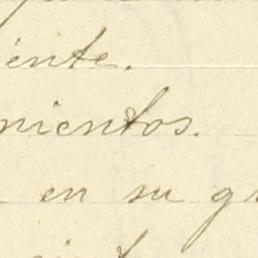 iente.
nientos.
en su gr